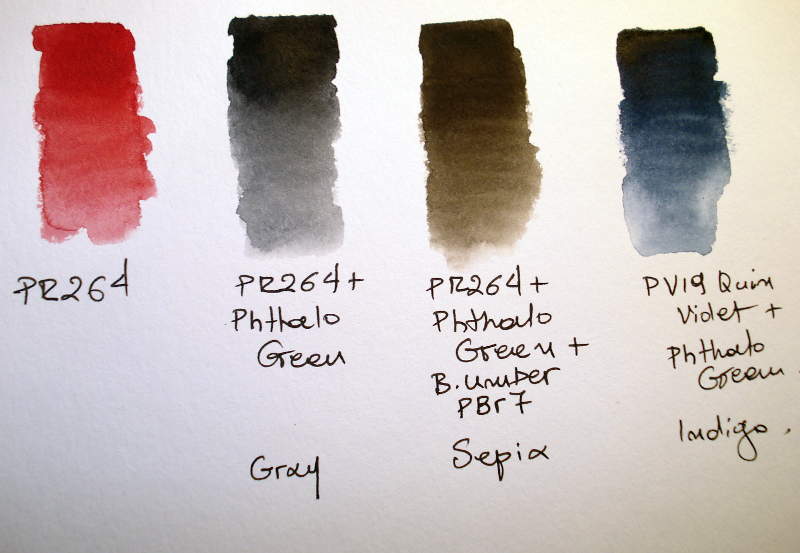 PR264
PR264 +
Phthalo
Green
Gray
PR264 +
Phthalo
Green +
B. umber
PBr7
Sepia
PV19 Quin
Violet +
Phthalo
Green
Indigo.